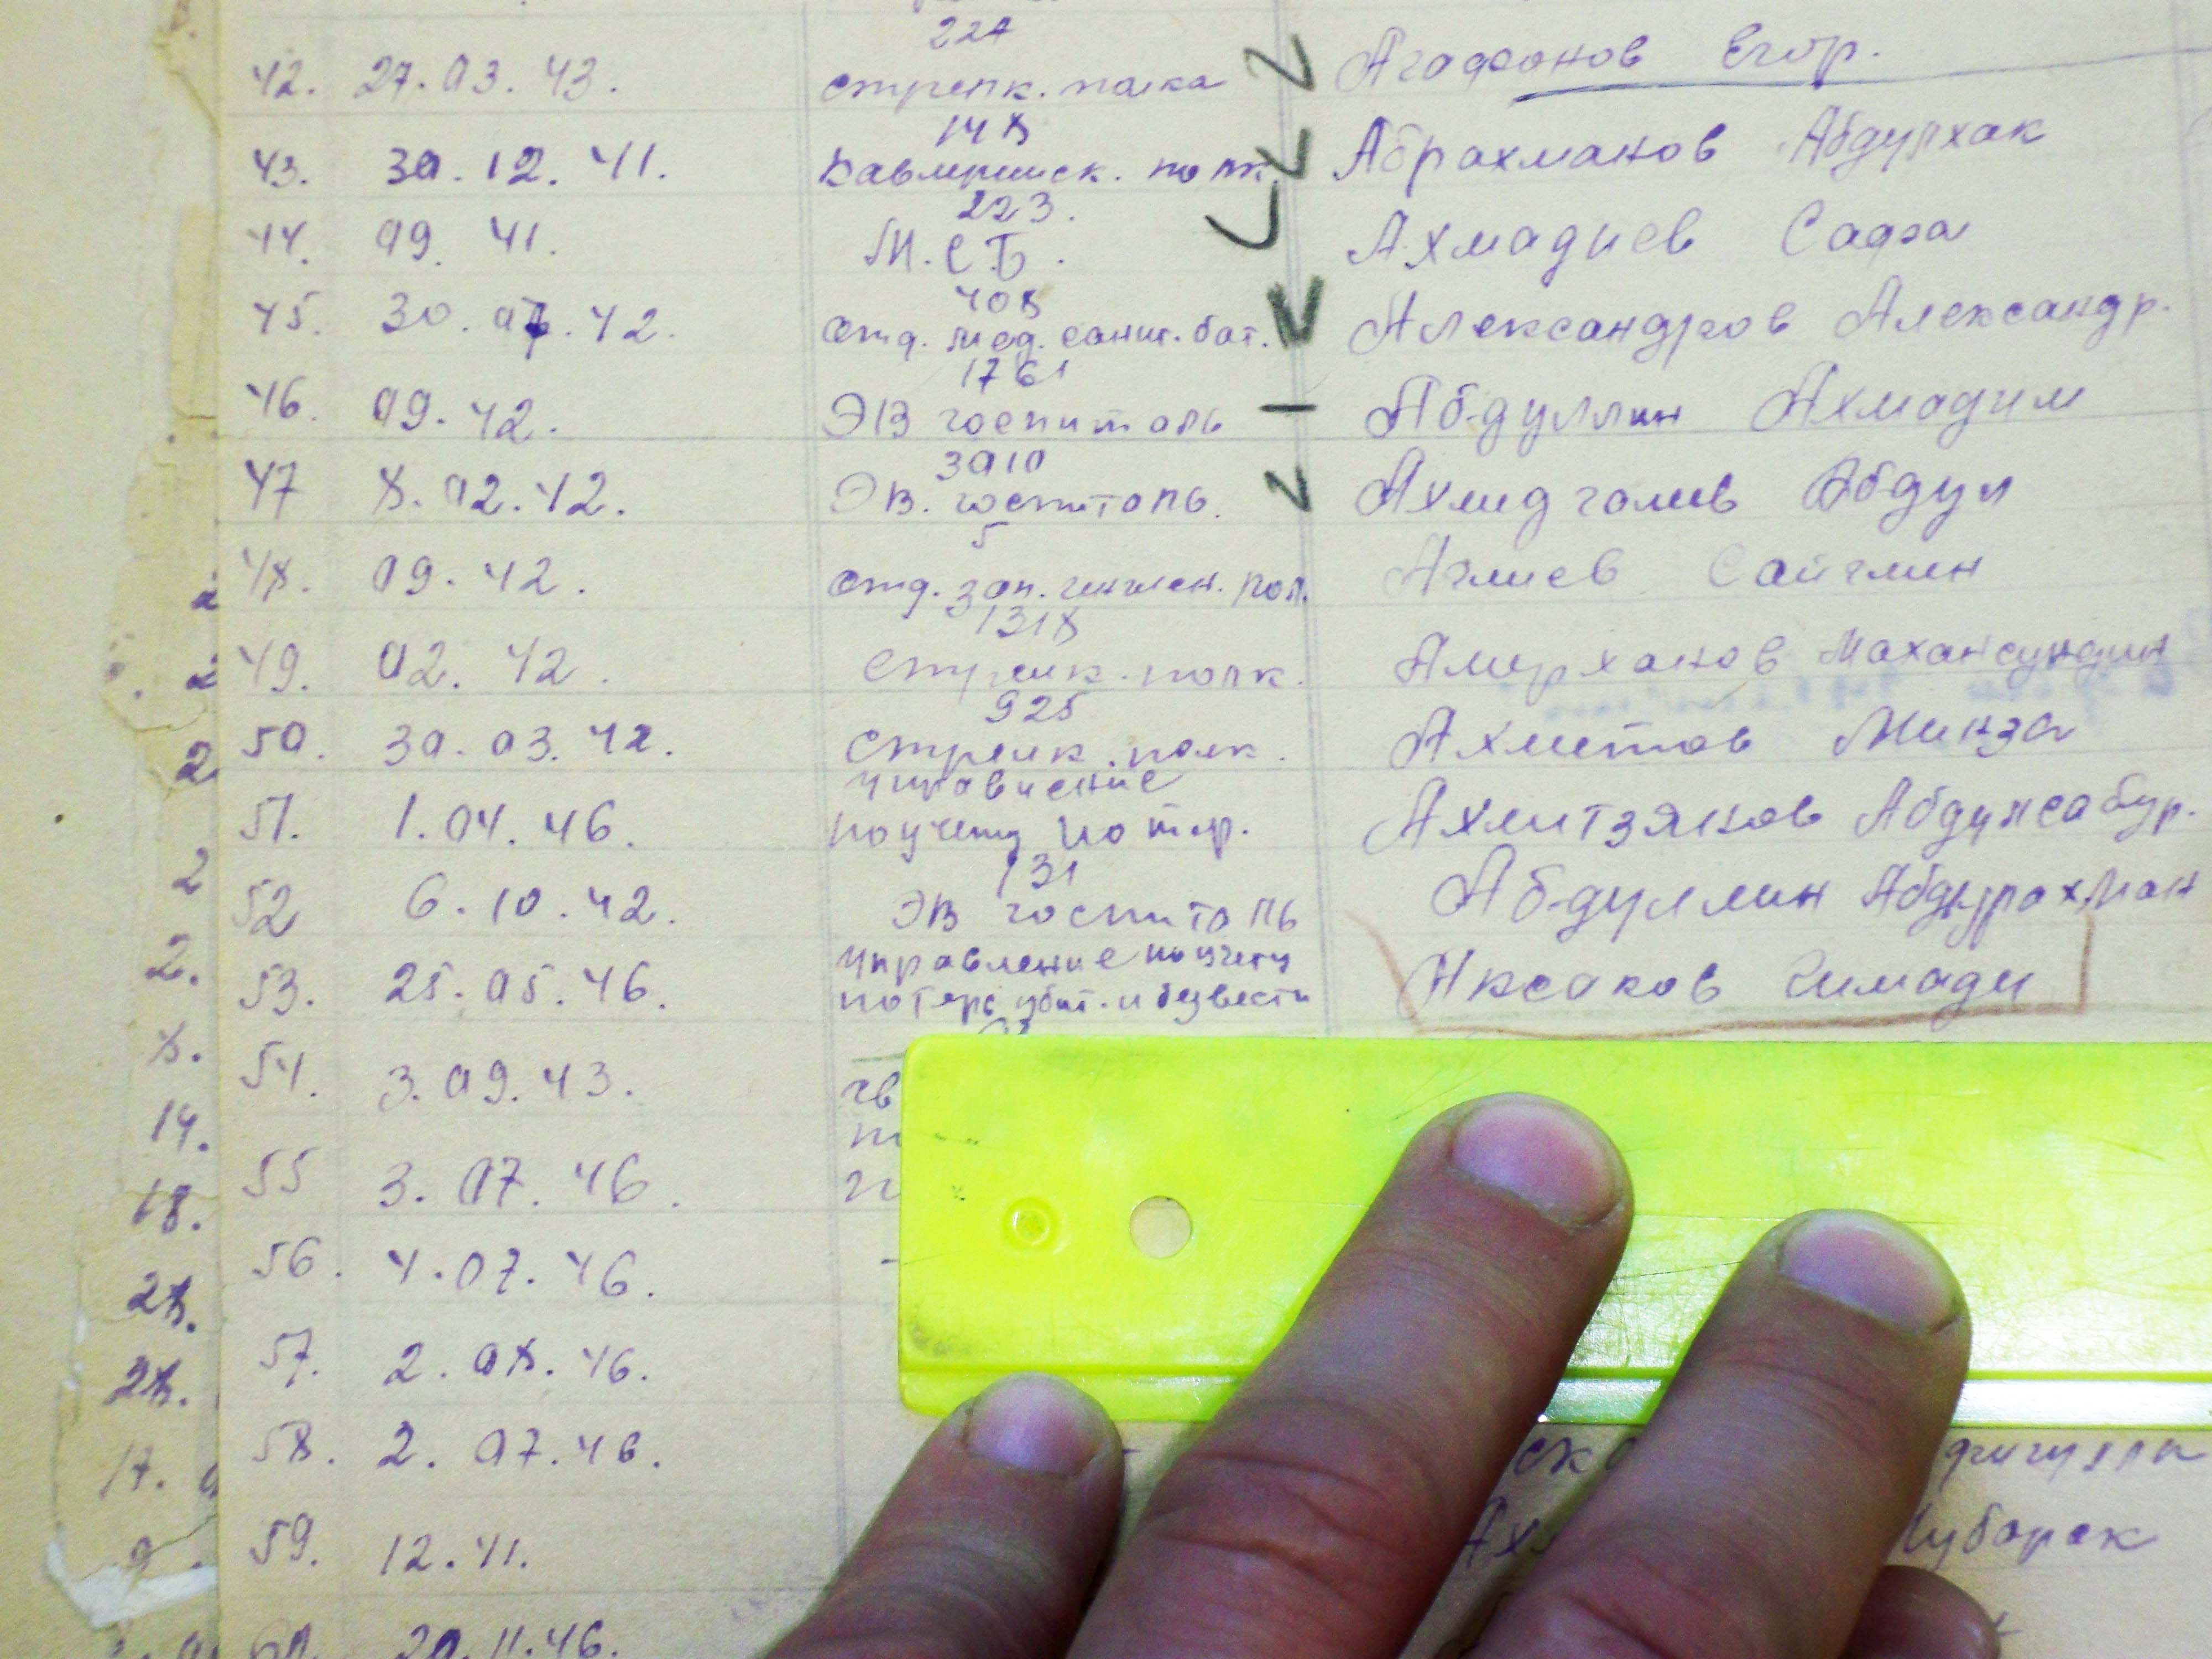 224
42. 27.03.43. стрелк. полка Агафонов Егор.
148
43. 30.12.41. Кавлерийск. полк. Абрахманов Абдулхак
223.
44. 09. 41. М.С.Б. Ахмадиев Сафа
408
45. 30. 07. 42. отд. мед. санит. бат. Александров Александр.
1761
46. 09. 42. ЭВ госпиталь Абдуллин Ахмадим
3010
47 8. 02. 42. ЭВ. госпиталь. Ахмидгалив Абдул
5
48. 09. 42. отд. зап. пол. Аглиев
1318
49. 02. 42. Стрелк. полк. Амирханов
925
50. 30. 03. 42. Стрелк. полк. Ахметов Минза
управление
51. 1. 04. 46. по учету потер. Ахмитзянов Абдулсабур.
131
52 6. 10. 42. ЭВ госпиталь Абдуллин Абдурахман
управление по учету
53. 25. 05. 46. потерь убит. и безвести Аксаков Гимади
54. 3. 09. 43. гв
55 3. 07. 46.
56. 4. 07. 46.
57. 2. 08. 46.
58. 2. 07. 46.
59. 12. 41. Ах Мубарак
60. 20. 11. 46.
2
2
2.
8.
14.
18.
28.
28.
17.
9